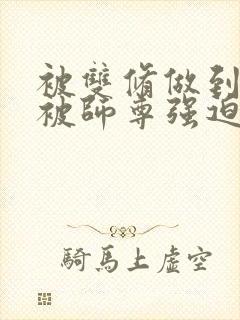 被雙脩做到
被師尊强迫
騎馬上虛空